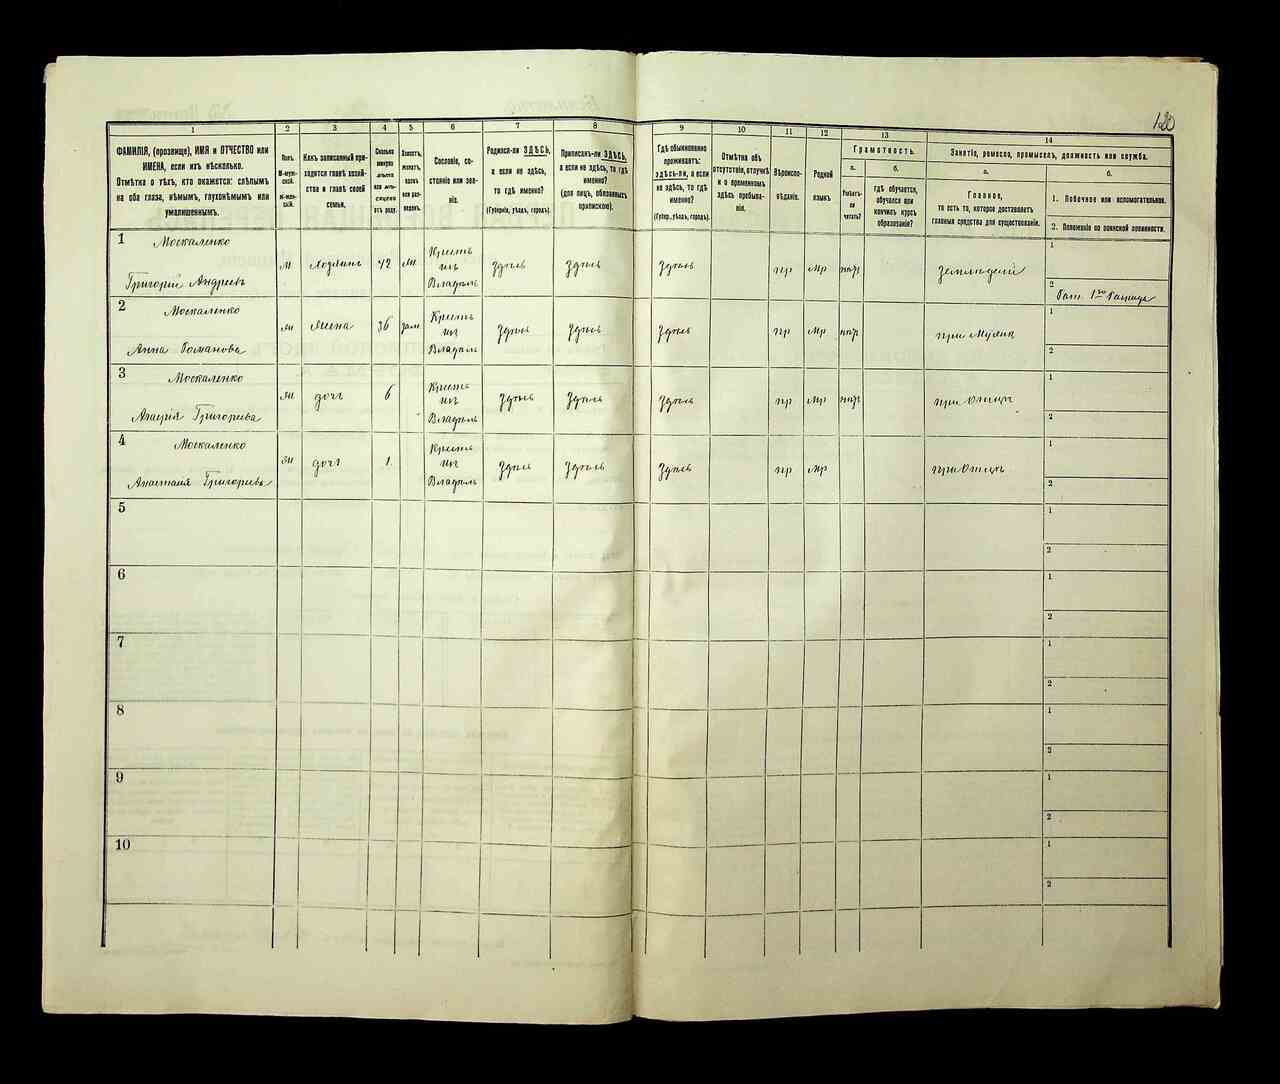 120
1 2 3 4 5 6 7 8 9 10 11 12 13 14
ФАМИЛІЯ, (прозвище), ИМЯ и ОТЧЕСТВО или
ИМЕНА, если ихъ нѣсколько.
Отмѣтка о тѣхъ, кто окажется: слѣпымъ
на оба глаза, нѣмымъ, глухонѣмымъ или
умалишеннымъ.
Полъ.
М-муж-
ской.
Ж-жен-
скій.
Какъ записанный при-
ходится главѣ хозяй-
ства и главѣ своей
семьи.
Сколько
минуло
лѣтъ
или мѣ-
сяцевъ
отъ роду.
Холостъ,
женатъ,
вдовъ
или раз-
веденъ.
Сословіе, со-
стояніе или зва-
ніе.
Родился-ли ЗДѢСЬ,
а если не здѣсь,
то гдѣ именно?
(Губернія, уѣздъ, городъ).
Приписанъ-ли ЗДѢСЬ,
а если не здѣсь, то гдѣ
именно?
(для лицъ, обязанныхъ
припискою).
Гдѣ обыкновенно
проживаетъ:
здѣсь-ли, а если
не здѣсь, то гдѣ
именно?
(Губер., уѣздъ, городъ).
Отмѣтка объ
отсутствіи, отлучкѣ
и о временномъ
здѣсь пребыва-
ніи.
Вѣроиспо-
вѣданіе.
Родной
языкъ
Грамотность.
а.
Умѣетъ-
ли
читать?
б.
гдѣ обучается,
обучался или
кончилъ курсъ
образованія?
Занятіе, ремесло, промыселъ, должность или служба.
а.
Главное,
то есть то, которое доставляетъ
главныя средства для существованія.
б.
1. Побочное или вспомогательное.
2. Положеніе по воинской повинности.
1 Москаленко
Григорій Андреевъ
м хозяинъ 42 жн Крестъ
изъ
Владѣль здѣсь здѣсь здѣсь пр мр нгр земледѣліе
1
2
2 Москаленко
Анна Романова
жн жена 36 зам Крестъ
изъ
Владѣль здѣсь здѣсь здѣсь пр мр нгр при Мужѣ
1
2
3 Москаленко
Григорьева
жн дочь 6 Крестъ
изъ
Владѣль здѣсь здѣсь здѣсь пр мр нгр при Отцѣ
1
2
4 Москаленко
Анастасія Григорьева
жн дочь 1 Крестъ
изъ
Владѣль здѣсь здѣсь здѣсь пр мр при Отцѣ
1
2
5 1
2
6 1
2
7 1
2
8 1
2
9 1
2
10 1
2